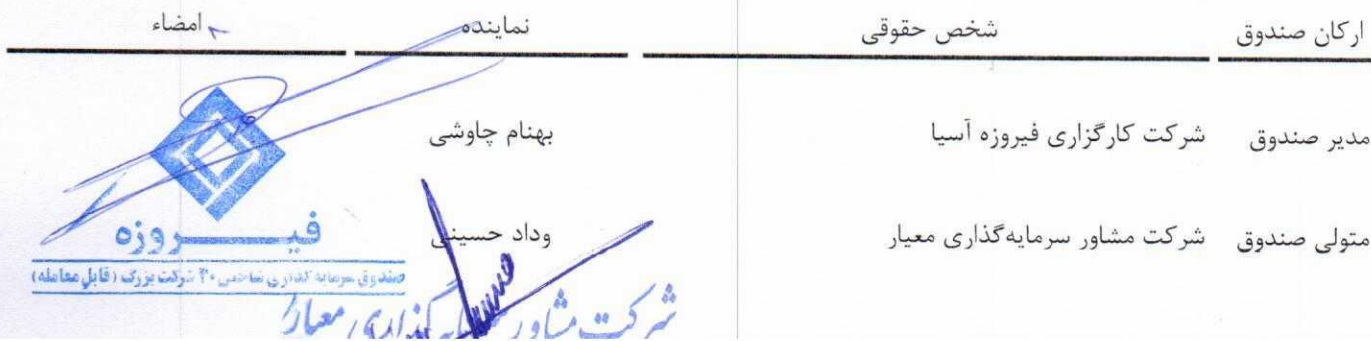 ارکان صندوق شخص حقوقی نماینده امضاء
مدیر صندوق شرکت کارگزاری فیروزه آسیا بهنام چاوشی
متولی صندوق شرکت مشاور سرمایه‌گذاری معیار وداد حسینی
فیـــروزه
صندوق سرمایه گذاری شاخصی ۳۰ شرکت بزرگ (قابل معامله)
شرکت مشاور سرمایه گذاری معیار